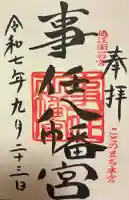 奉拝
遠江國一宮
ことのまち本宮
事任八幡宮
令和七年九月二十三日